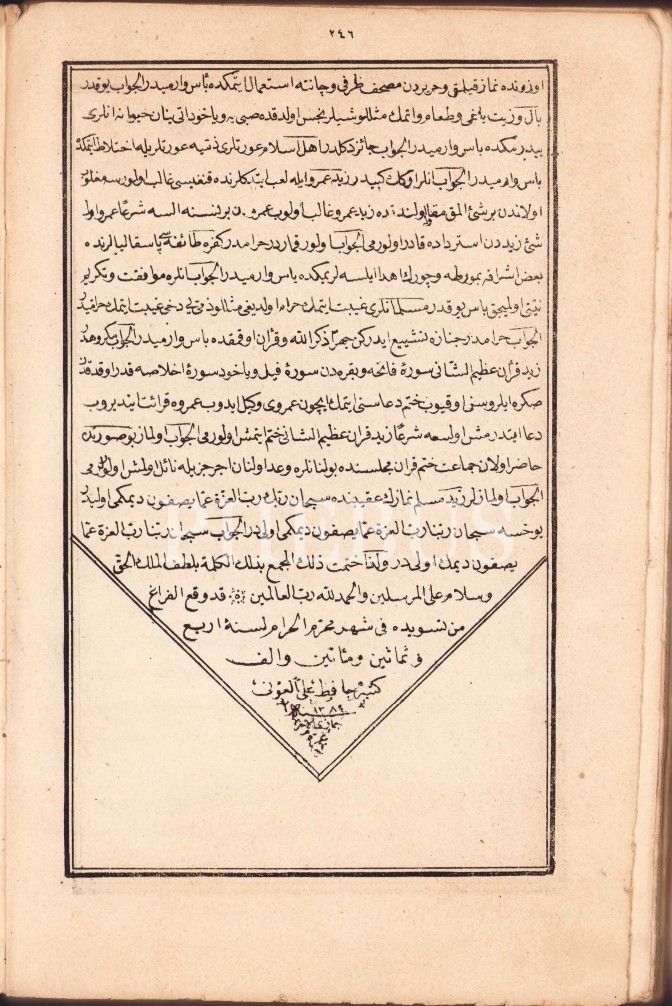 ٢٤٦
اوزرنده نماز قیلمق وحریردن مصحف ظرفی وچانته استعمال ایتمکده بأس وارمیدر الجواب یوقدر
بال وزیت یاغی وطعام واتمك مثللو شیلر نجس اولدقده صبی یه ویاخود اتی ینان حیوانه انلری
ییدیرمکده بأس وارمیدر الجواب جائز دکلدر اهل اسلام عورتلری ذمیه عورتلریله اختلاط ایتمکده
بأس وارمیدر الجواب انلر اوکك کبیدر زید عمرو ایله لعب ایتدکلرنده قنغیسی غالب اولورسه مغلوب
اولاندن برشئ المق مقاوله اولندقده زید عمروه غالب اولوب عمرودن برنسنه السه شرعا عمرو اول
شئ زیددن استرداده قادر اولورمی الجواب اولور قماردر حرامدر کفره طائفه سی پاسقالیالرنده
بعض اشرافه یمورطه وچورك اهدا ایلسه لر یمکده بأس وارمیدر الجواب انلره موافقت وتکریم
نیتی اولیجق بأس یوقدر مسلمانلری غیبت ایتمك حرام اولدیغی مثللو ذمی یی دخی غیبت ایتمك حرامیدر
الجواب حرامدر جنازه تشییع ایدرکن جهرا ذکر الله وقرأن اوقمقده بأس وارمیدر الجواب مکروهدر
زید قرأن عظیم الشانی سورۀ فاتحه وبقره دن سورۀ فیل ویاخود سورۀ اخلاصه قدر اوقدقدن
صکره ایلروسنی اوقیوب ختم دعاسنی ایتمك ایچون عمروی وکیل ایدوب عمروه قرائت ایتدیروب
دعا ایتدرمش اولسه شرعا زید قرأن عظیم الشانی ختم ایتمش اولورمی الجواب اولماز بو صورتده
حاضر اولان جماعت ختم قرأن مجلسنده بولنانلره وعد اولنان اجر جزیله نائل اولمش اولورلرمی
الجواب اولمازلر زید مسلم نمازك عقیبنده سبحان ربك رب العزة عما یصفون دیمکمی اولیدر
یوخسه سبحان ربنا رب العزة عما یصفون دیمکمی اولیدر الجواب سبحان ربنا رب العزة عما
یصفون دیمك اولیدر ولقد ختمت ذلك المجمع بتلك الکلمة بلطف الملك الحق
وسلام علی المرسلین والحمد لله رب العالمین قد وقع الفراغ
من تسویده فی شهر محرم الحرام لسنة اربع
و ثمانین ومئاتین والف
کتبه حافظ علی العونی
١٢٨٤